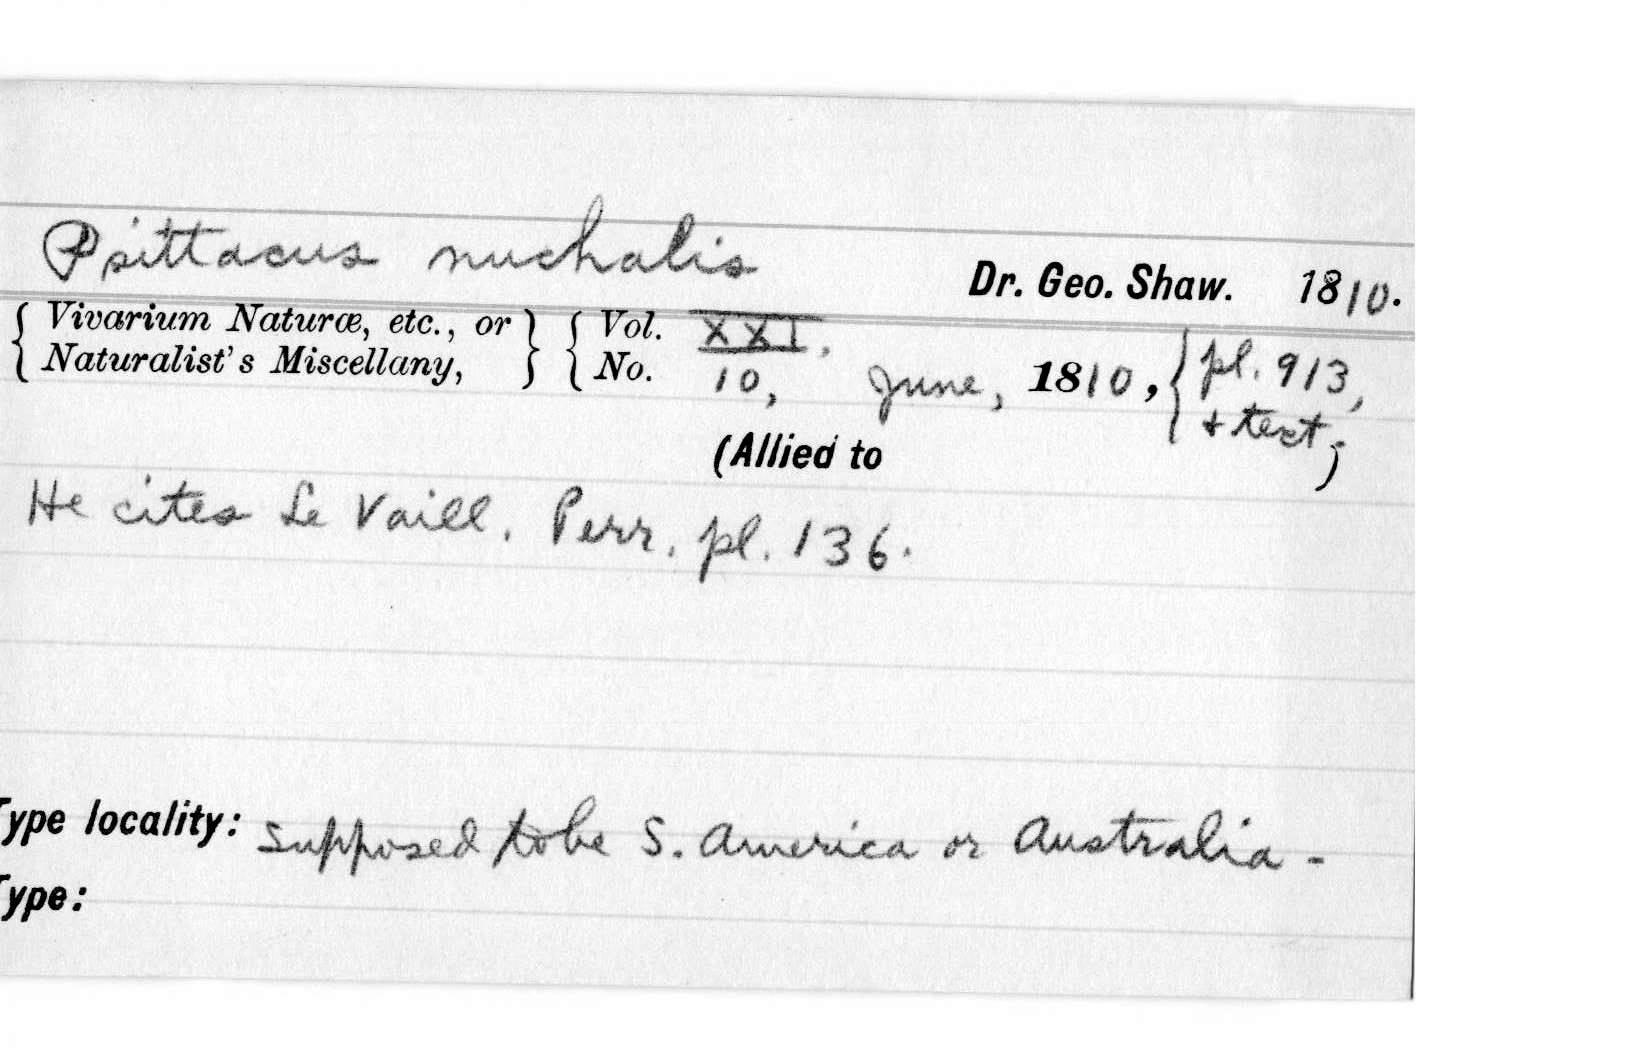 Psittacus nuchalis Dr. Geo. Shaw. 1810.
{ Vivarium Naturæ, etc., or } { Vol. XXI, 
{ Naturalist's Miscellany, } { No. 10, June, 1810, { pl. 913,
+ text.
(Allied to )
He cites Le Vaill. Perr. pl. 136.
Type locality: Supposed to be S. America or Australia -
Type: